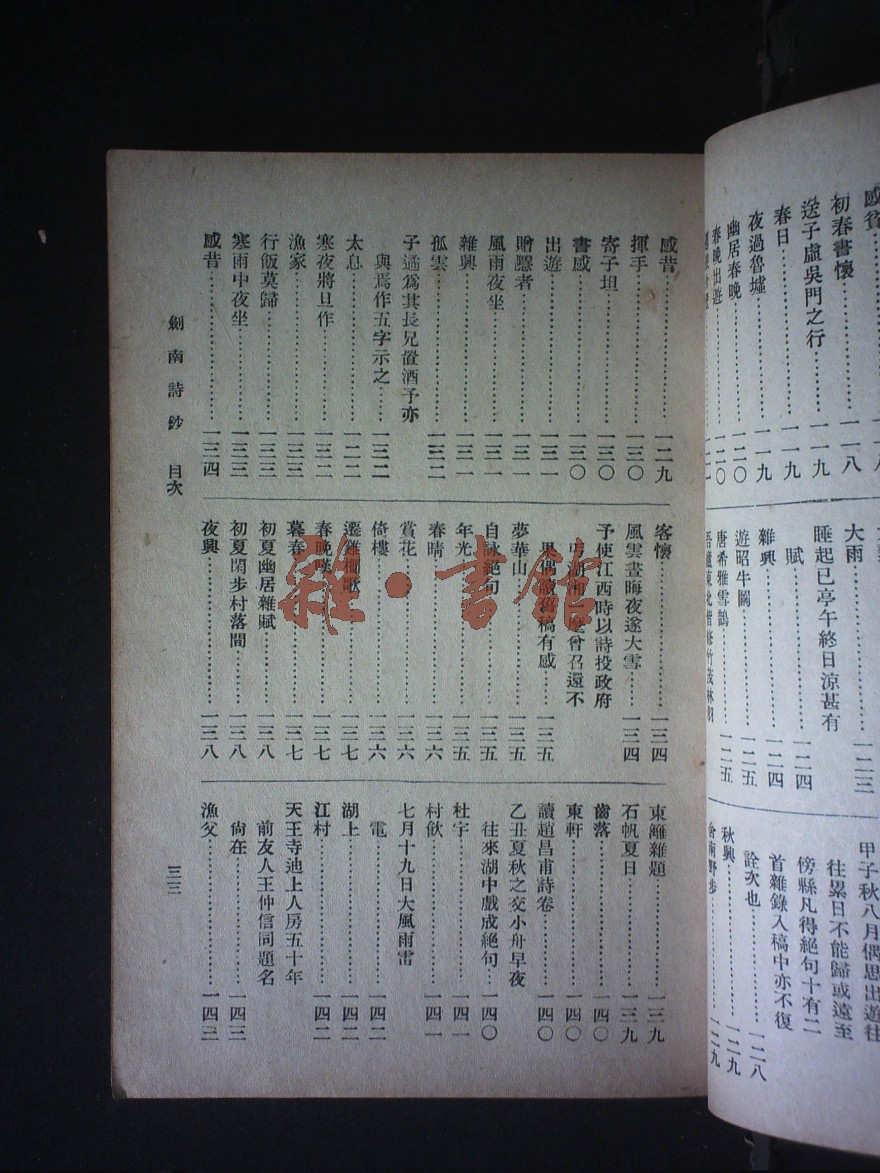 感貧
初春書懷……一一八
送子虛吳門之行……一一九
春日……一一九
夜過魯墟……一一九
幽居春晚……一二〇
春晚出遊……一二〇
大雨……一二三
睡起已亭午終日涼甚有
賦……一二四
雜興……一二四
遊昭牛圖……一二五
唐希雅雪鵲……一二五
甲子秋八月偶思出遊往
往累日不能歸或遠至
傍縣凡得絕句十有二
首雜錄入稿中亦不復
詮次也……一二八
秋興……一二九
舍南野步……一二九
感昔……一二九
揮手……一三〇
寄子坦……一三〇
書感……一三〇
出遊……一三一
贈醫者……一三一
風雨夜坐……一三一
雜興……一三一
孤雲……一三二
子遹爲其長兄置酒予亦
與焉作五字示之……一三二
太息……一二二
寒夜將旦作……一三二
漁家……一三三
行飯莫歸……一三三
寒雨中夜坐……一三三
感昔……一三四
客懷……一三四
風雲晝晦夜遂大雪……一三四
予使江西時以詩投政府
丐湖湘一麾會召還不
果偶讀舊稿有感……一三五
夢華山……一三五
自詠絕句……一三五
年光……一三五
春晴……一三六
賞花……一三六
倚樓……一三六
遷雞柵歌……一三七
春晚嘆……一三七
暮春……一三七
初夏幽居雜賦……一三八
初夏閑步村落間……一三八
夜興……一三八
東籬雜題……一三九
石帆夏日……一三九
齒落……一四〇
東軒……一四〇
讀趙昌甫詩卷……一四〇
乙丑夏秋之交小舟早夜
往來湖中戲成絕句……一四〇
杜宇……一四一
村飲……一四一
七月十九日大風雨雷
電……一四二
湖上……一四二
江村……一四二
天王寺迪上人房五十年
前友人王仲信同題名
尙在……一四三
漁父……一四三
劍南詩鈔 目次
三三
雜·書館